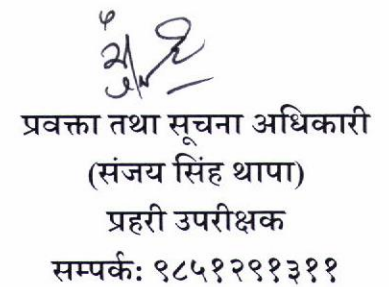 प्रवक्ता तथा सूचना अधिकारी
(संजय सिंह थापा)
प्रहरी उपरीक्षक
सम्पर्क: ९८५१२९१३११